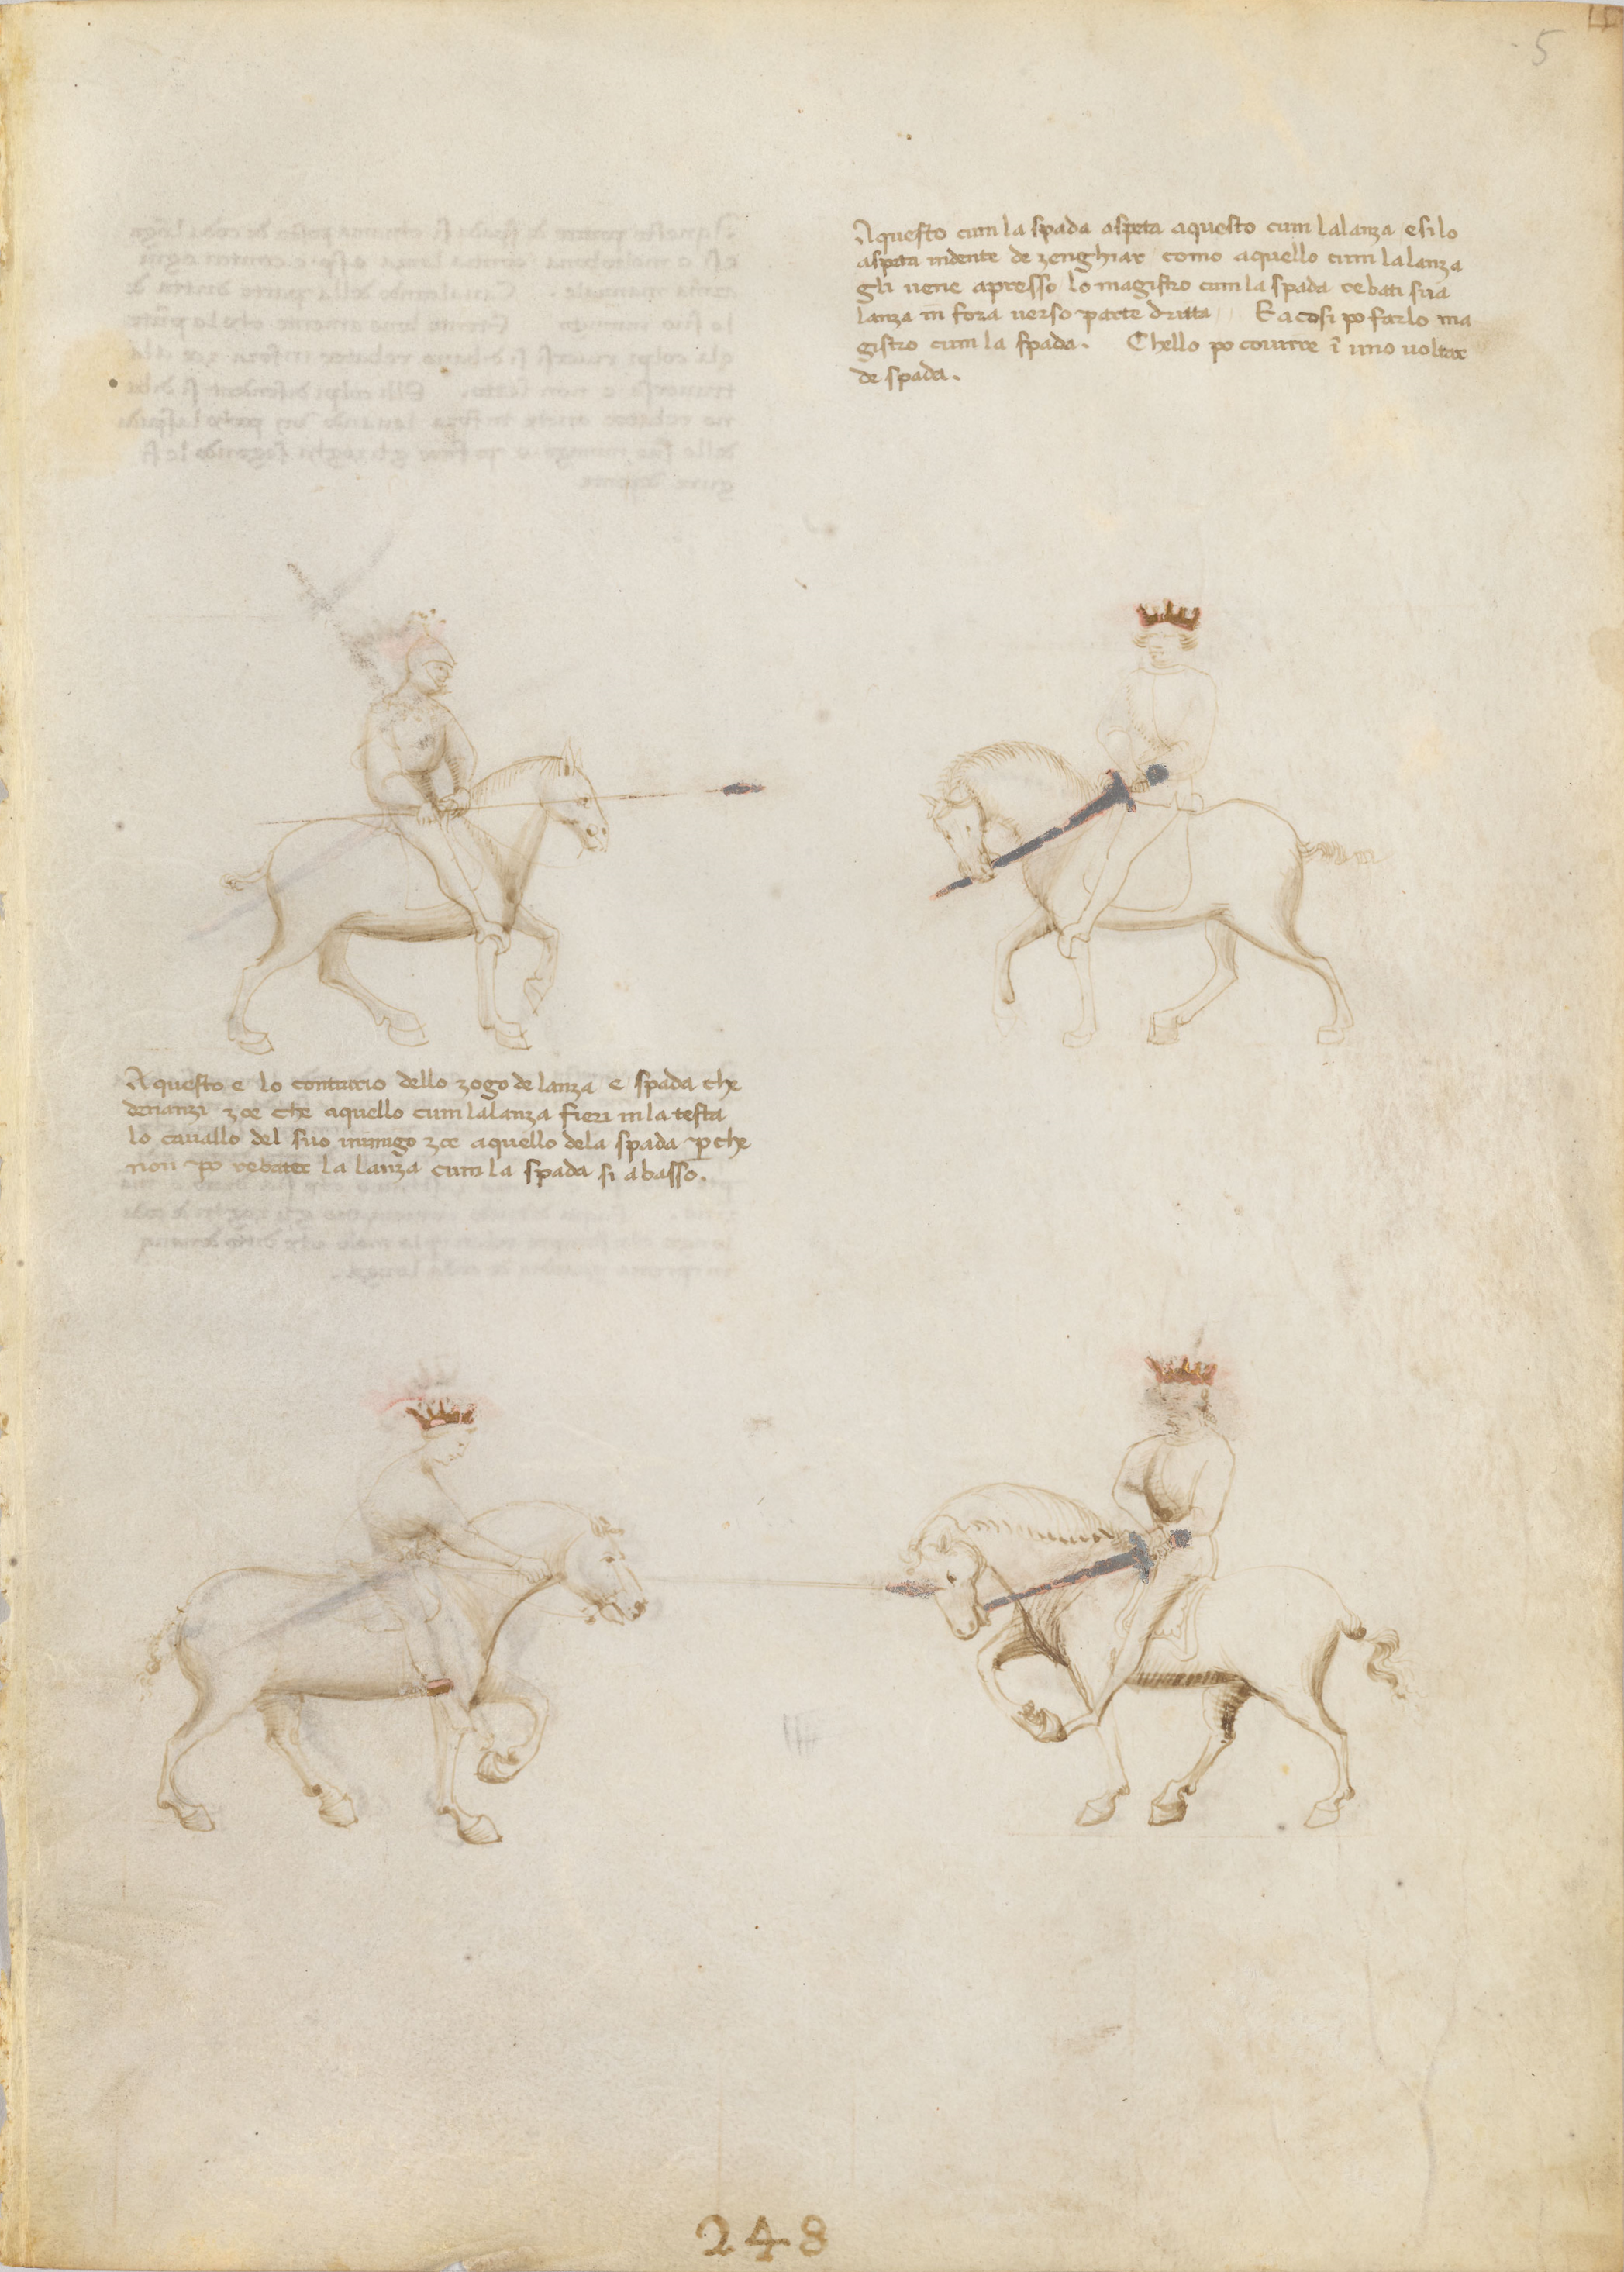 5
Aquesto cum la spada aspeta aquesto cum la lanza e si lo
aspeta in dente de zenghiar como aquello cum la lanza
gli uene apresso lo magistro cum la spada rebati sua
lanza in fora uerso parte dritta E acosi po farlo ma
gistro cum la spada. Chello po courire ĩ uno uoltar
de spada.
Aquesto e lo contrario dello zogo de lanza e spada che
denanzi zoe che aquello cum la lanza fieri in la testa
lo cauallo del suo inimigo zoe aquello de la spada ꝑche
non po rebater la lanza cum la spada si abasso.
248